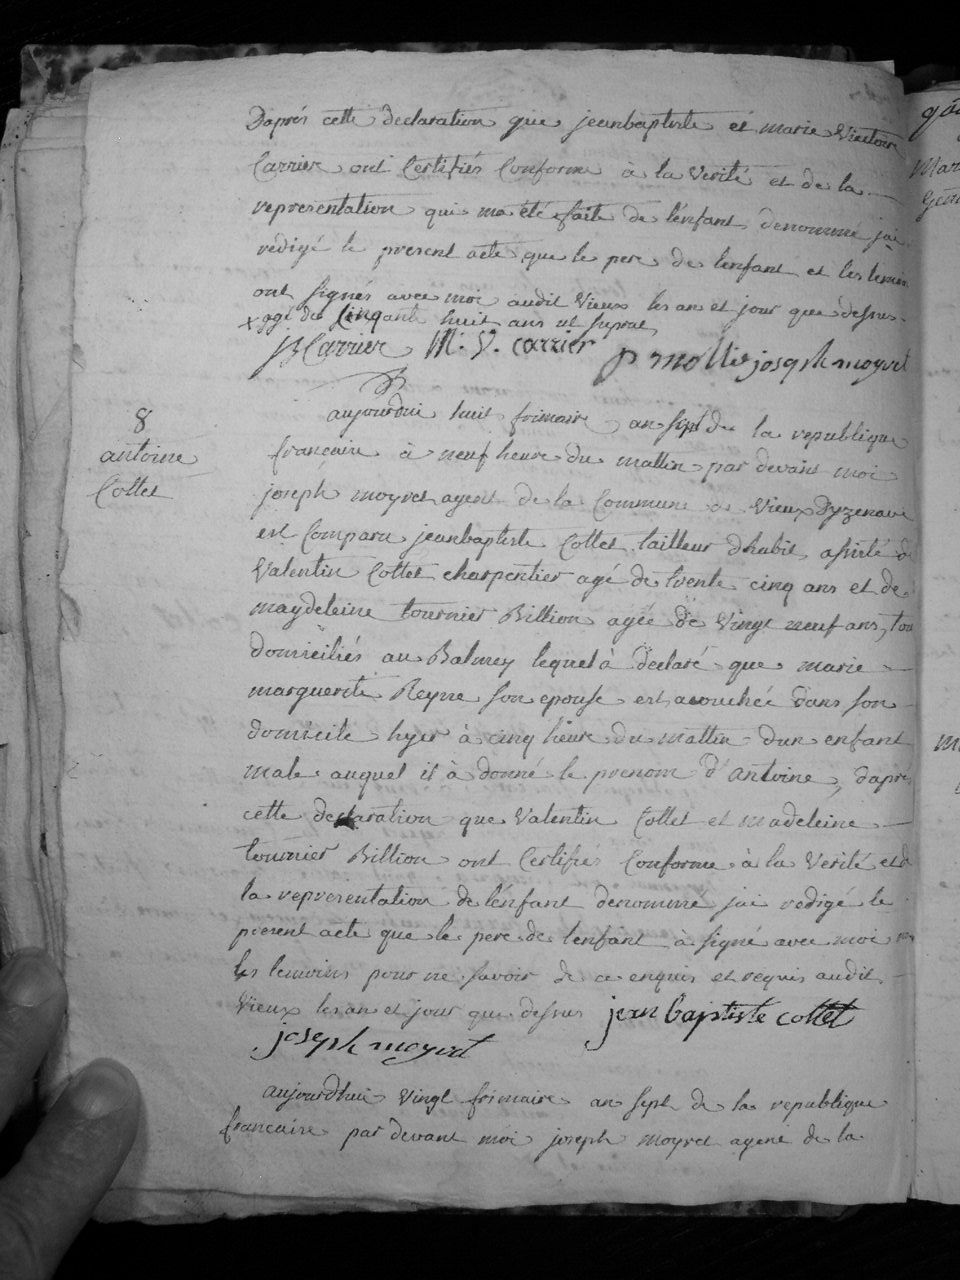 Daprés cette declaration que jeanbaptiste et marie Victoire
Carrier ont Certifiés Conforme à la Verité et de la
representation qui ma été faite de lénfant denommé jai
rédigé le present acte que le pere de lenfant et les temoin
ont signés avec moi audit Vieux les an et jour que dessus.
x agé de Cinqante huit ans ut supra
JB Carrier M. V. carrier p mollie joseph moyret
8
antoine
Collet
aujourdui huit frimaire an sept de la republique
francaise à neuf heure du mattin par devant moi
joseph moyret agent de la Commune de Vieux Dyzenave
est Comparu jeanbaptiste Collet tailleur dhabit, assisté de
Valentin Collet charpentier agé de trente cinq ans et de
magdeleine tournier Billion agée de Vingt neuf ans, tou
domiciliés au Balmey lequel à déclaré que marie
marguerite Reyne son epouse est acouchée dans son
domicile hyer à cinq heure du mattin dun enfant
male auquel il à donné le prenom d'antoine, daprés
cette declaration que Valentin Collet et madeleine
tournier Billion ont Certifiés Conforme à la Verité et de
la representation de lénfant denommé jai redigé le
present acte que le pere de lenfant à signé avec moi
les temoins pour ne savoir de ce enquis et requis audit
Vieux les an et jour que dessus jean baptiste collet
joseph moyret
aujourdhui Vingt frimaire an sept de la republique
francaise par devant moi joseph moyret agent de la